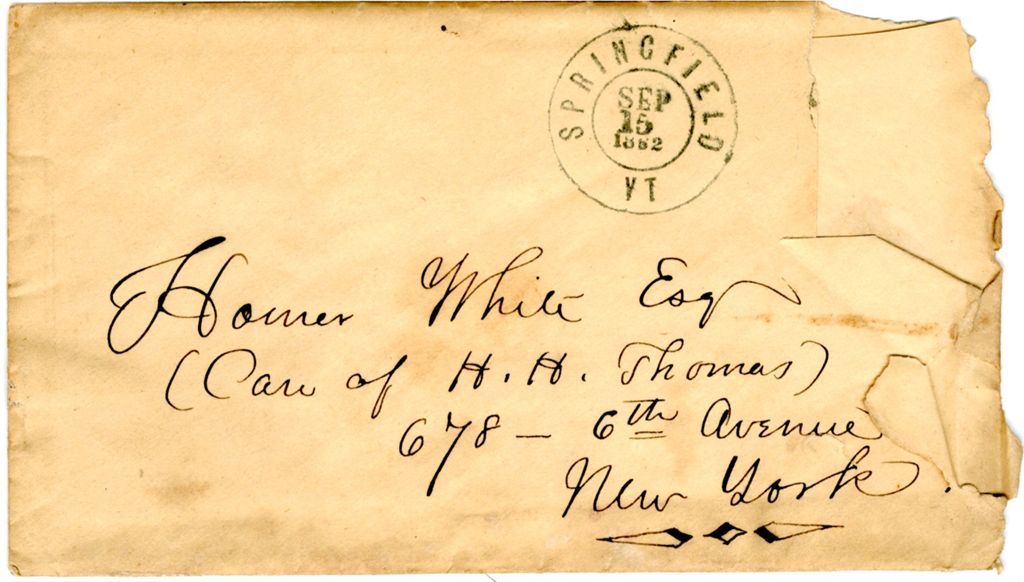 SPRINGFIELD
SEP
15
1882
VT
Homer White Esq
(Care of H. H. Thomas)
678 – 6th Avenue
New York.